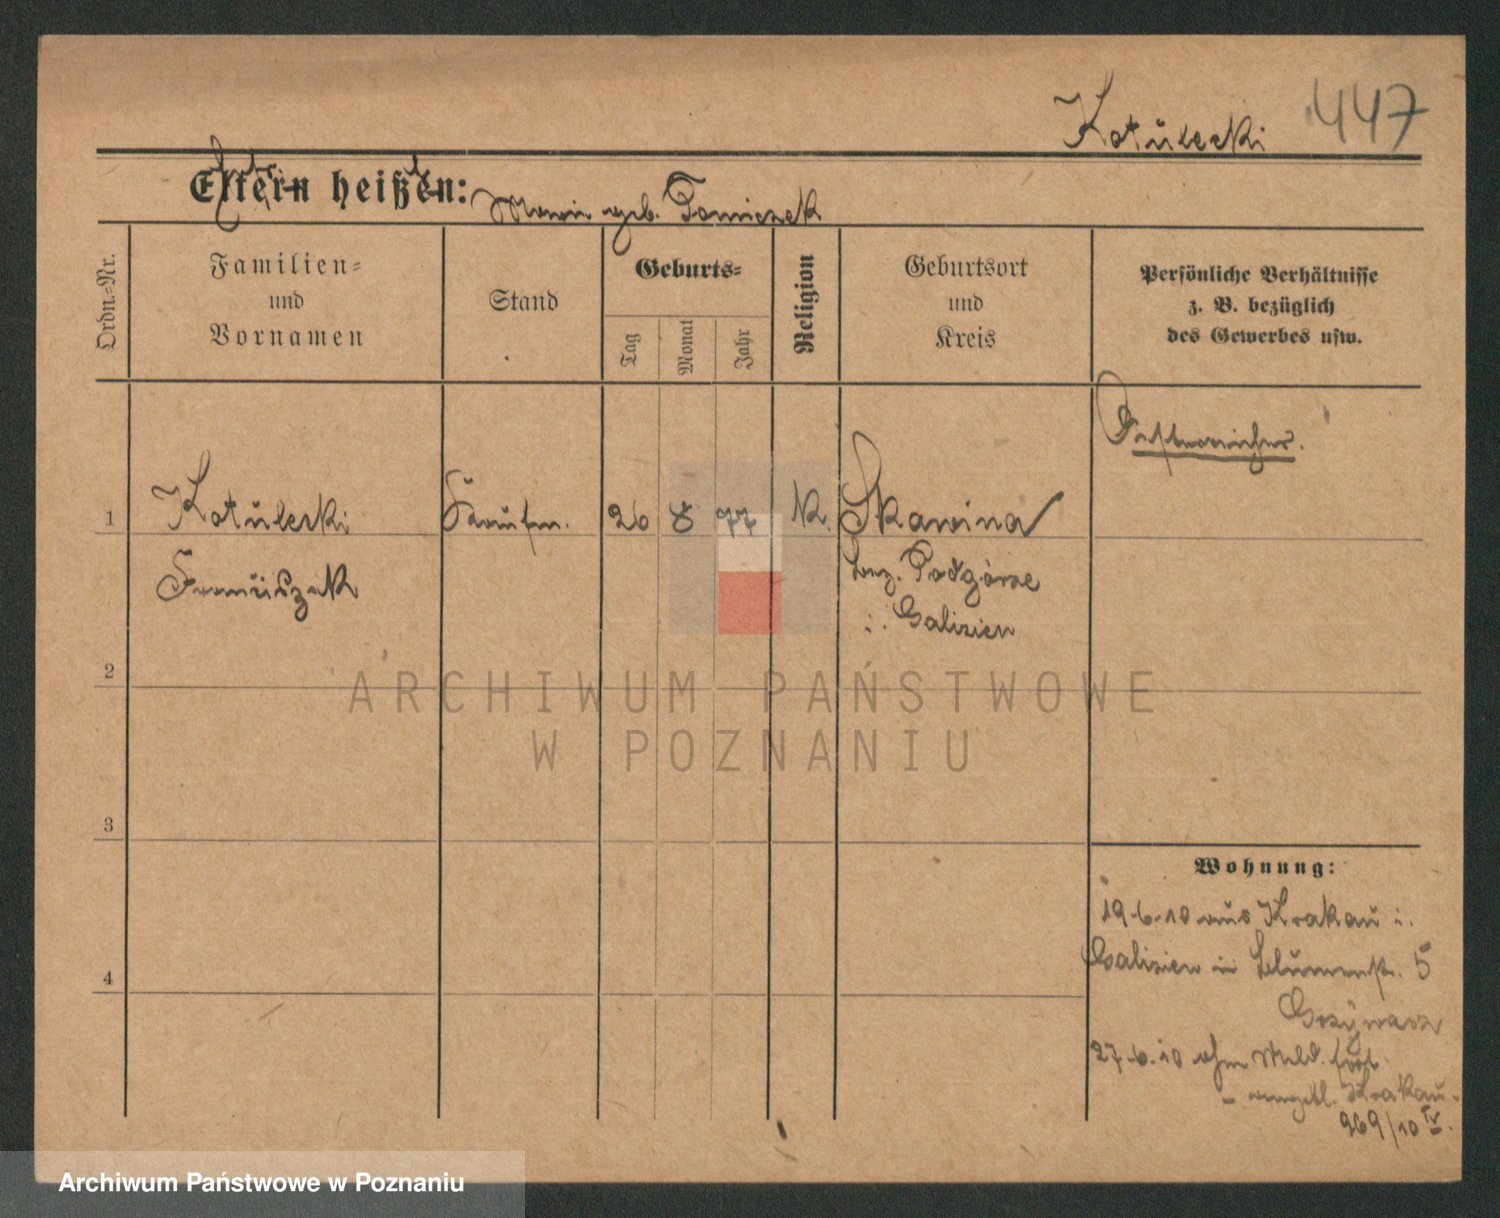 Kotulecki 447
Eltern heißen:
Maria geb. Tomiczek
Ordn.-Nr.
Familien-
und
Vornamen
Stand
Geburts-
Tag
Monat
Jahr
Religion
Geburtsort
und
Kreis
Persönliche Verhältnisse
z. B. bezüglich
des Gewerbes usw.
Oesterreicher.
1 Kotulecki Kaufm. 26 8 77 K. Skawina
Franciszek
bez. Podgórze
i. Galizien
2
3
4
Wohnung:
19.6.10 aus Krakau i.
Galizien in Blumenstr. 5
27.6.10 ohne Meld. fort
- angebl. Krakau.
969/10 IV.
ARCHIWUM PAŃSTWOWE
W POZNANIU
Archiwum Państwowe w Poznaniu